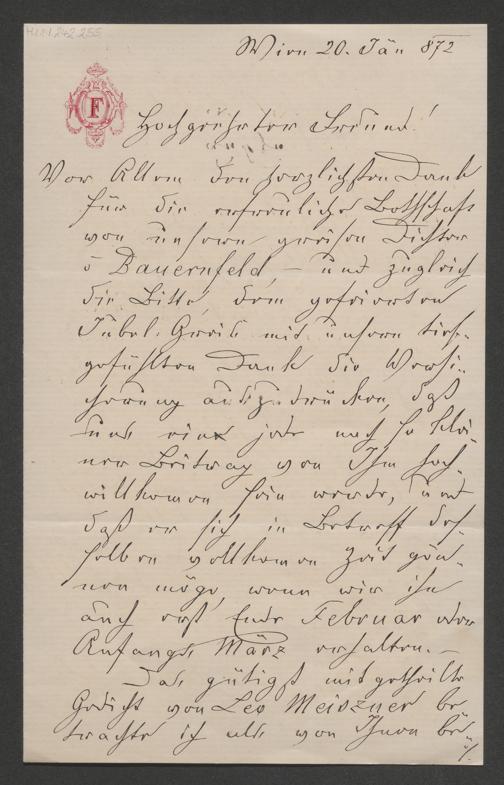 H.I.N. 242.255
Wien 20. Jän 872
F
Hochgeehrter Freund!
Vor Allem den herzlichsten Dank
für die erfreuliche Bothschaft
von unserm greisen Dichter
v Bauernfeld, – und zugleich
die Bitte, dem gefeierten
Jubel-Greise mit unserm tief-
gefühlten Dank die Versi-
cherung auszudrücken, daß
uns ein jeder noch so klei-
ner Beitrag von Ihm hoch-
willkomen sein werde, und
daß er sich in Betreff des-
selben vollkomen Zeit gön-
nen möge, wenn wir ihn
auch erst Ende Februar oder
Anfangs März erhalten. –
Das gütigst mitgetheilte
Gedicht von Leo Meiszner be-
trachte ich als von Ihnen